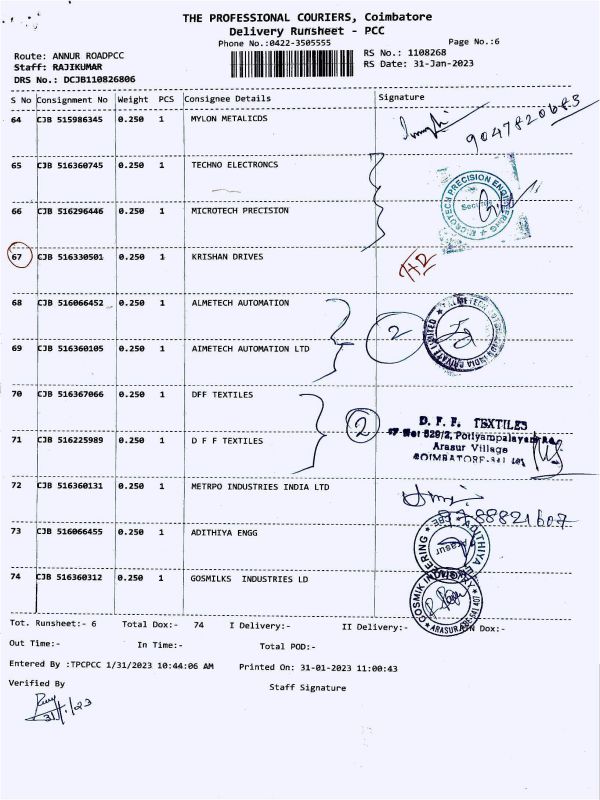 THE PROFESSIONAL COURIERS, Coimbatore
Delivery Runsheet - PCC
Phone No.:0422-3505555
Page No.:6
Route: ANNUR ROADPCC
RS No.: 1108268
Staff: RAJIKUMAR
RS Date: 31-Jan-2023
DRS No.: DCJB110826806
S No Consignment No Weight PCS Consignee Details Signature
64 CJB 515986345 0.250 1 MYLON METALICDS
9047820683
65 CJB 516360745 0.250 1 TECHNO ELECTRONCS
MICROTECH PRECISION ENGINEERING
66 CJB 516296446 0.250 1 MICROTECH PRECISION
67 CJB 516330501 0.250 1 KRISHAN DRIVES
68 CJB 516066452 0.250 1 ALMETECH AUTOMATION
2
69 CJB 516360105 0.250 1 AIMETECH AUTOMATION LTD
INDIA PRIVATE LIMITED
70 CJB 516367066 0.250 1 DFF TEXTILES
2
D. F. F. TEXTILES
529/2, Potiyampalayam
71 CJB 516225989 0.250 1 D F F TEXTILES
Arasur Village
COIMBATORE-641 407
72 CJB 516360131 0.250 1 METRPO INDUSTRIES INDIA LTD
88821607
73 CJB 516066455 0.250 1 ADITHIYA ENGG
ADITHIYA
Arasur
74 CJB 516360312 0.250 1 GOSMILKS INDUSTRIES LD
Tot. Runsheet:- 6 Total Dox:- 74 I Delivery:- II Delivery:- N Dox:-
Out Time:- In Time:- Total POD:-
Entered By :TPCPCC 1/31/2023 10:44:06 AM Printed On: 31-01-2023 11:00:43
Verified By
Staff Signature